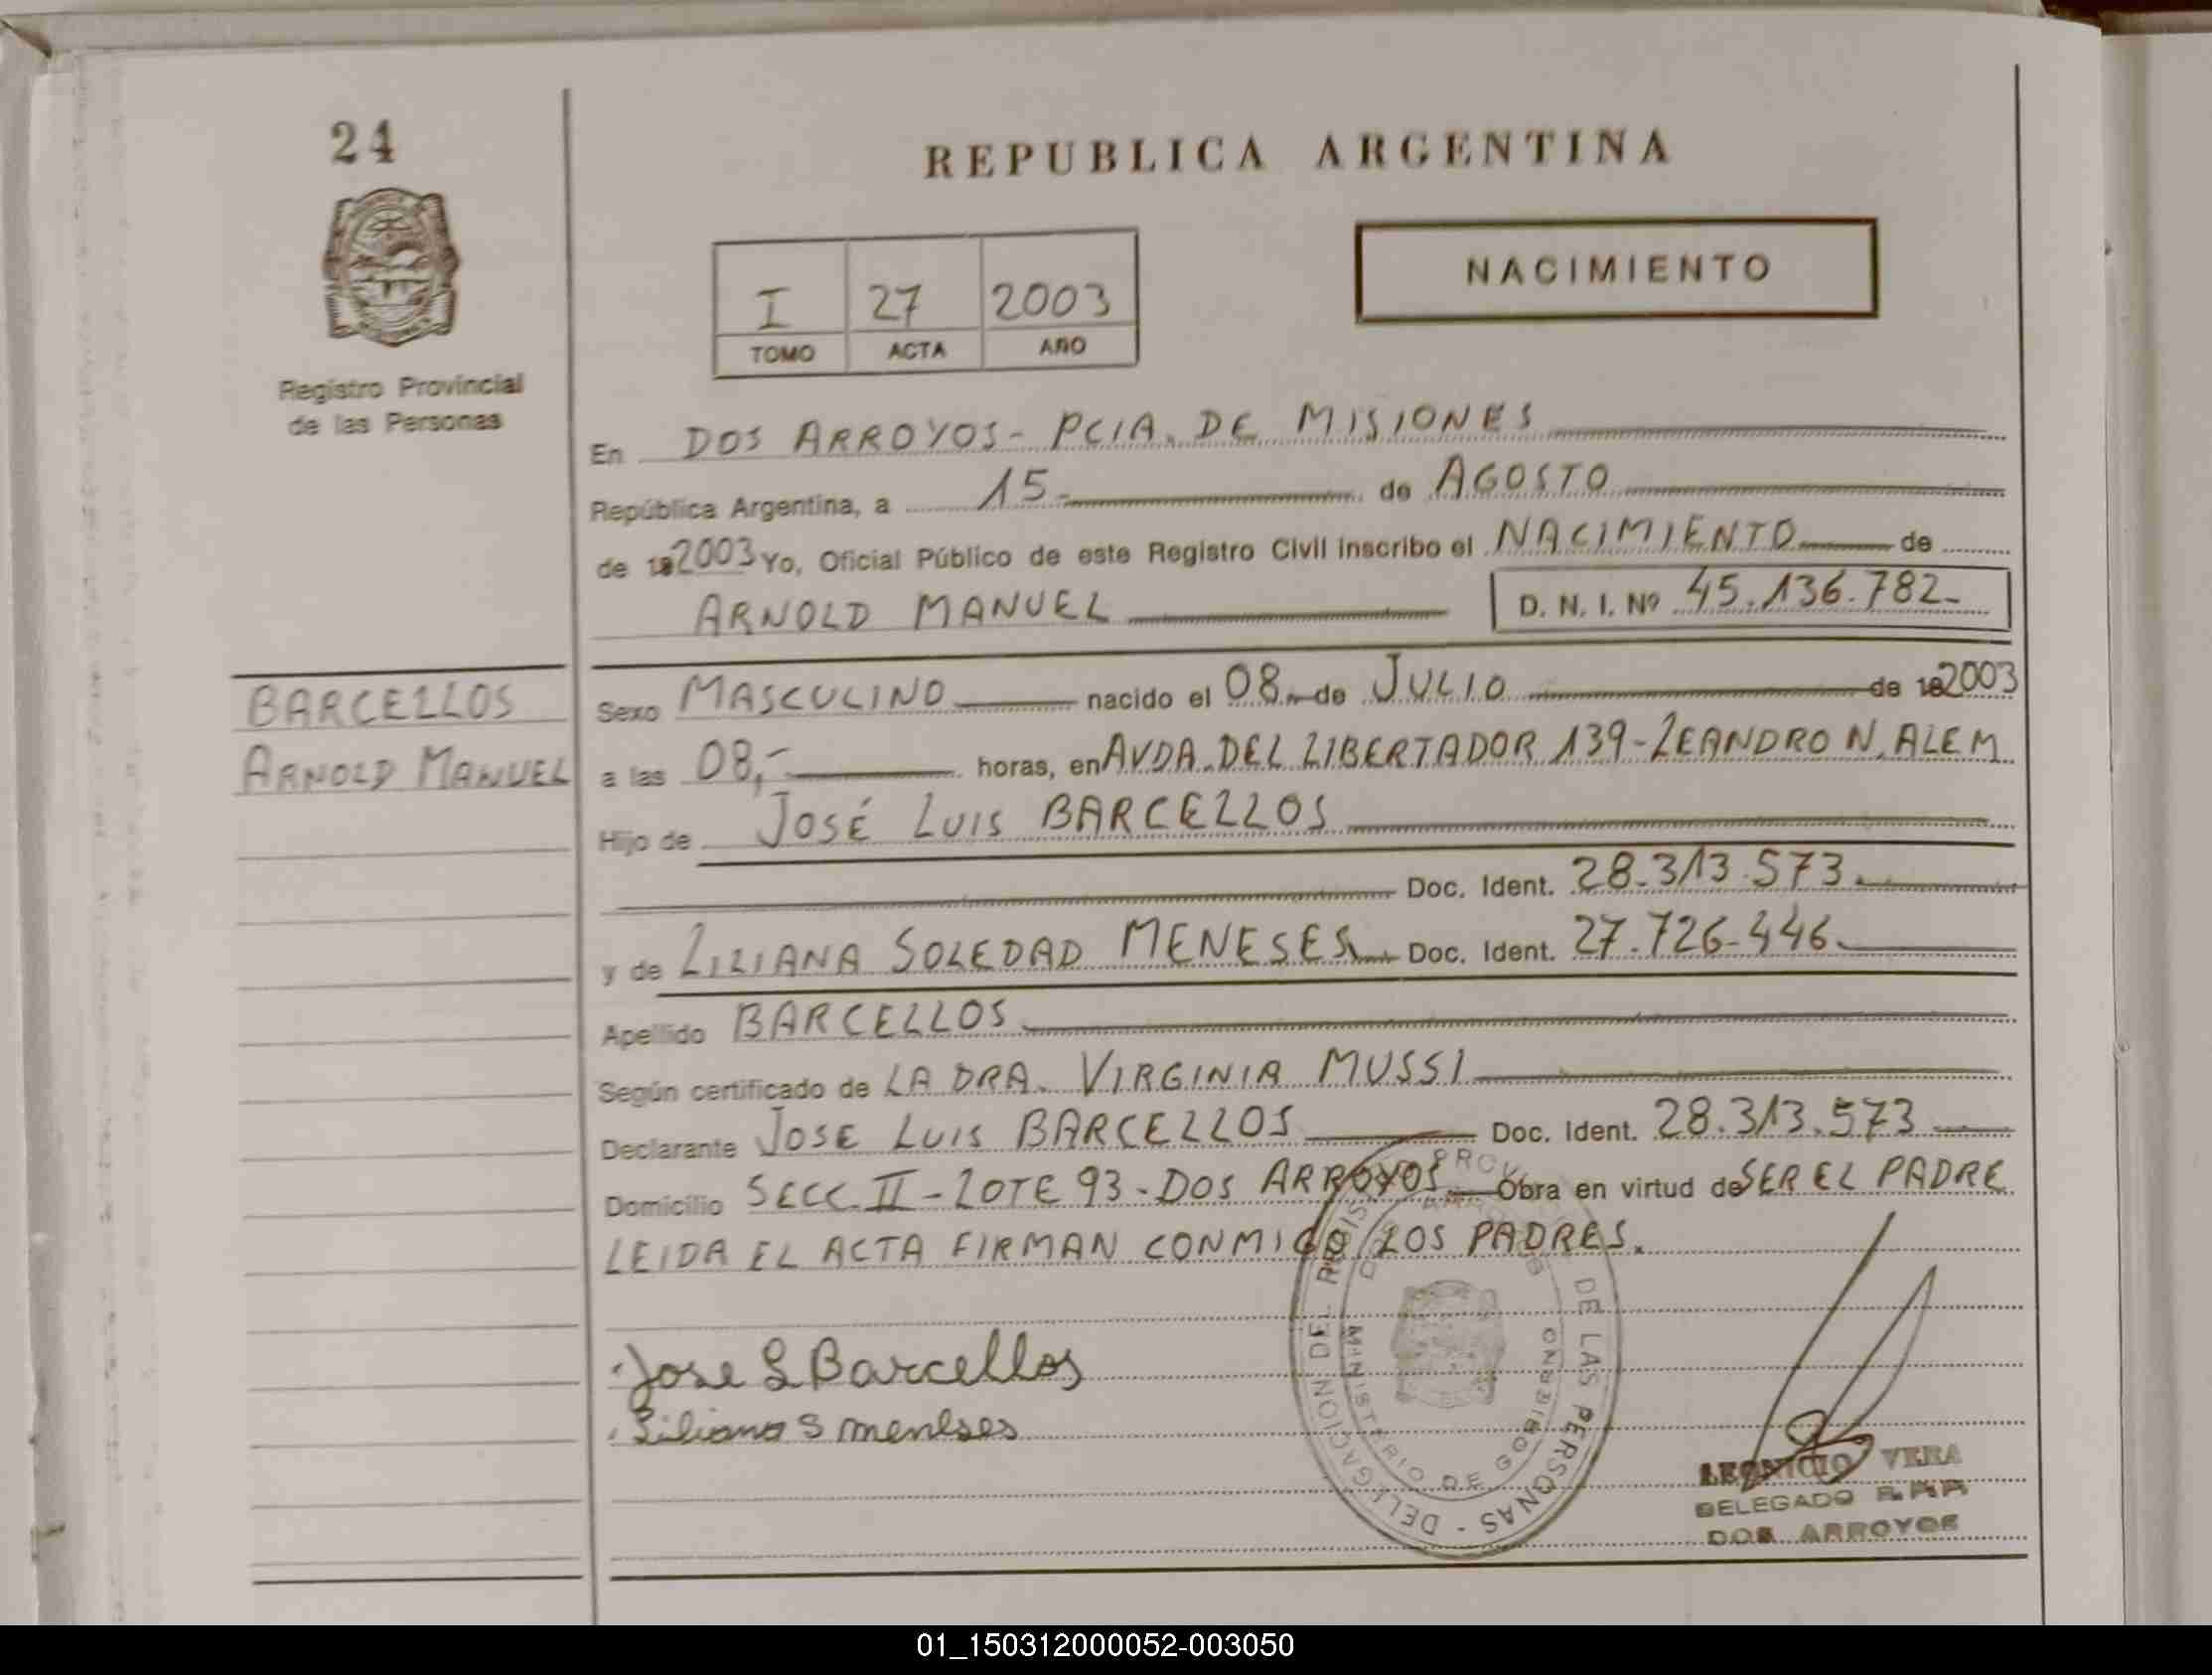 24
REPUBLICA ARGENTINA
Registro Provincial
de las Personas
I 27 2003
TOMO ACTA AÑO
NACIMIENTO
En DOS ARROYOS - PCIA. DE MISIONES
República Argentina, a 15 de AGOSTO
de 2003 Yo, Oficial Público de este Registro Civil inscribo el NACIMIENTO de
ARNOLD MANUEL D. N. I. Nº 45.136.782
BARCELLOS
ARNOLD MANUEL
Sexo MASCULINO nacido el 08 de JULIO de 2003
a las 08,- horas, en AVDA. DEL LIBERTADOR 139 - LEANDRO N. ALEM
Hijo de JOSÉ LUIS BARCELLOS
Doc. Ident. 28.313.573.
y de LILIANA SOLEDAD MENESES Doc. Ident. 27.726.446.
Apellido BARCELLOS
Según certificado de LA DRA. VIRGINIA MUSSI
Declarante JOSE LUIS BARCELLOS Doc. Ident. 28.313.573
Domicilio SECC. II - LOTE 93 - DOS ARROYOS Obra en virtud de SER EL PADRE
LEIDA EL ACTA FIRMAN CONMIGO LOS PADRES.
Jose L Barcellos
Liliana S meneses
DE LAS PERSONAS - DELEGACION DEL
MINISTERIO DE GOBIERNO
LEONICIO VERA
DELEGADO R.P.P.
DOS ARROYOS
01_150312000052-003050